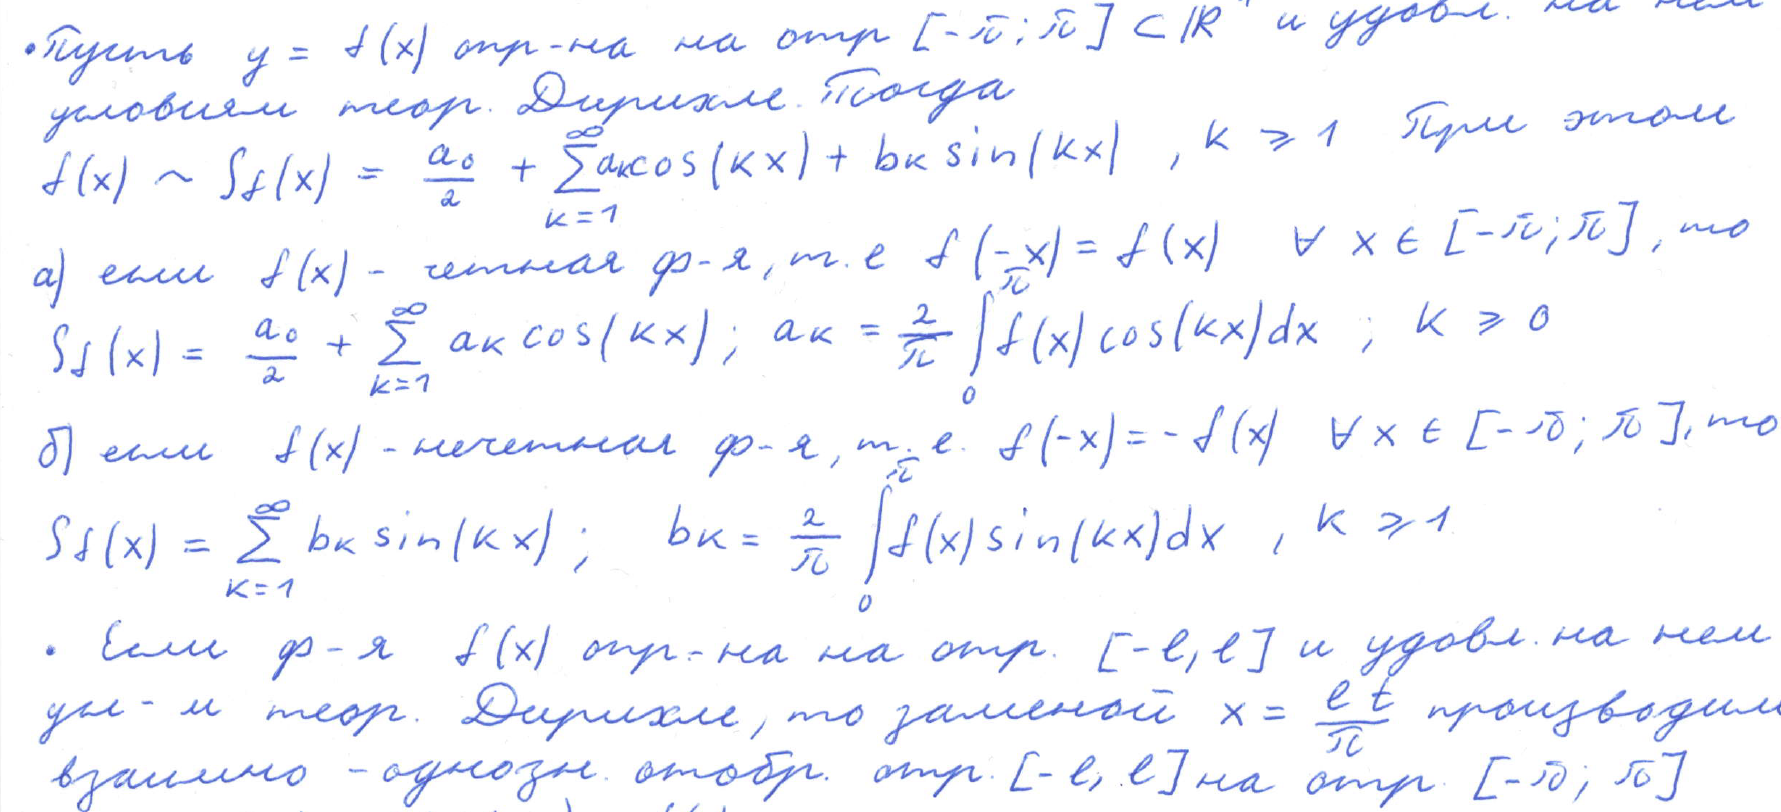 • Пусть y = f(x) опр-на на отр [-π; π] ⊂ ℝ¹ и удовл. на нем
условиям теор. Дирихле. Тогда
f(x) ~ Sf(x) = a₀/2 + ∑_{k=1}^{∞} aₖcos(kx) + bₖ sin(kx), k ⩾ 1 При этом
а) если f(x) - четная ф-я, т.е f(-x) = f(x) ∀ x ∈ [-π; π], то
Sf(x) = a₀/2 + ∑_{k=1}^{∞} aₖ cos(kx); aₖ = 2/π ∫_0^π f(x) cos(kx)dx ; k ⩾ 0
б) если f(x) - нечетная ф-я, т.е. f(-x) = - f(x) ∀ x ∈ [-π; π], то
Sf(x) = ∑_{k=1}^{∞} bₖ sin(kx); bₖ = 2/π ∫_0^π f(x) sin(kx)dx , k ⩾ 1
• Если ф-я f(x) опр-на на отр. [-l, l] и удовл. на нем
усл-м теор. Дирихле, то заменой x = lt/π производим
взаимно-однозн. отобр. отр. [-l, l] на отр. [-π; π]